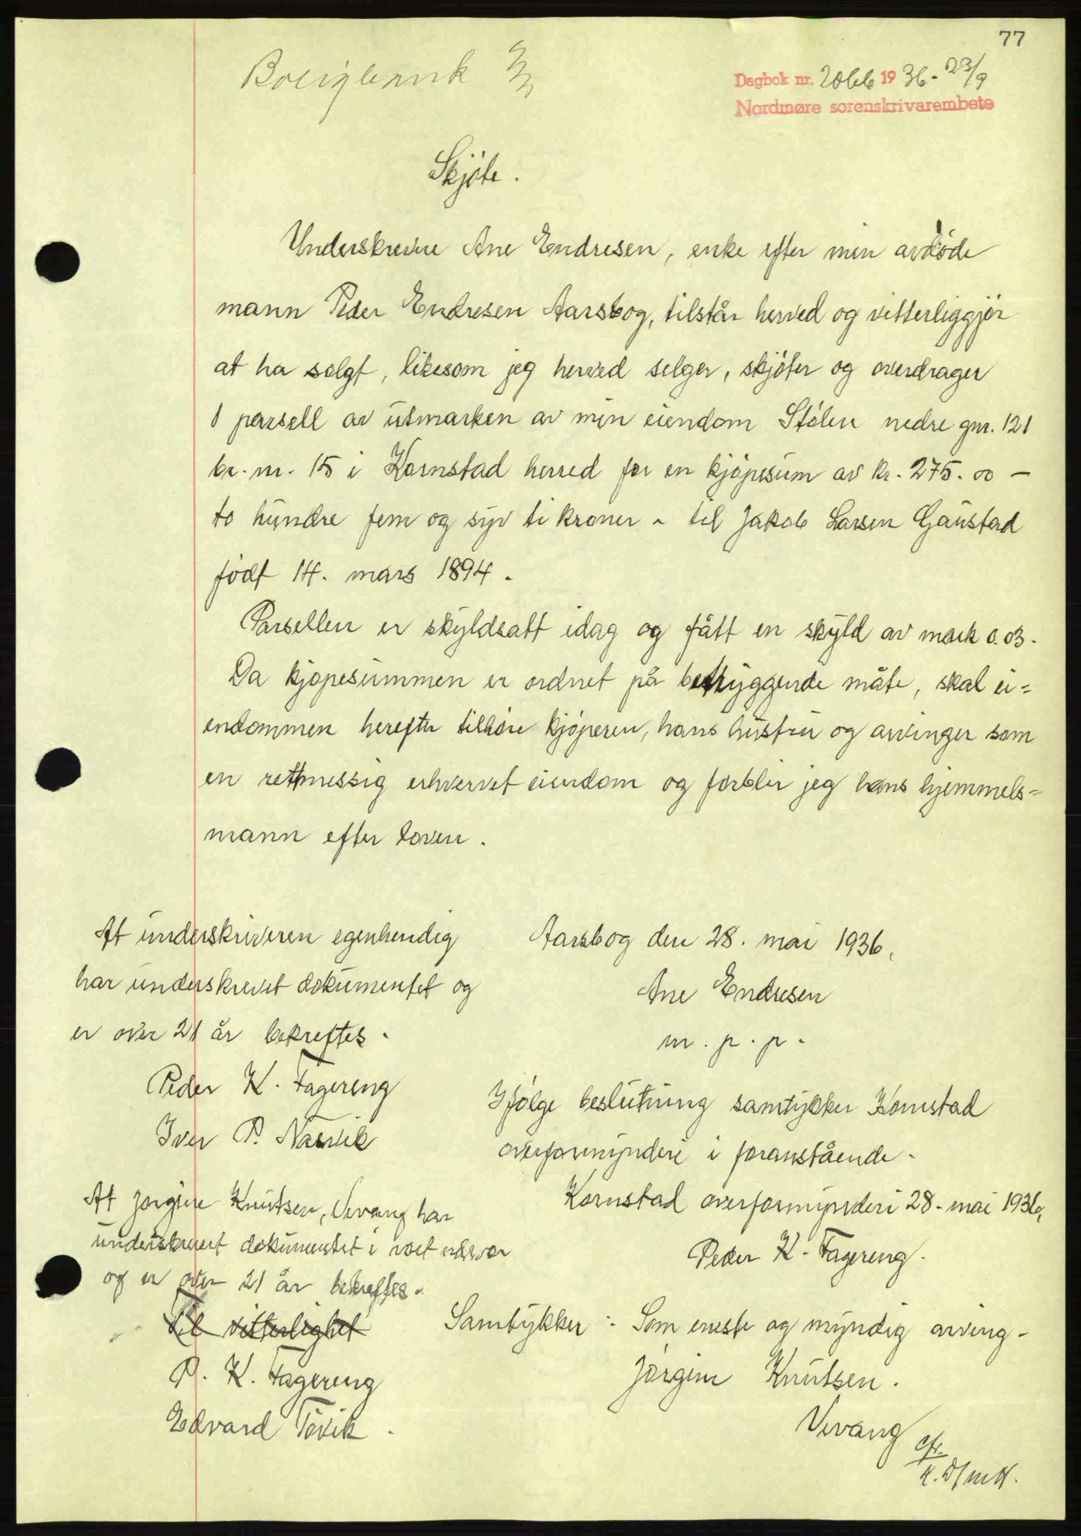 77
Boligbruk
Dagbok nr. 2066 1936 - 23/9
Nordmøre sorenskrivarembete
Skjøte.
Underskrevne Ane Endresen, enke efter min avdøde
mann Peder Endresen Aarsbog, tilstår herved og vitterliggjør
at ha solgt, likesom jeg herved selger, skjøter og overdrager
1 parsell av utmarken av min eiendom Stølen nedre gnr. 121
br. nr. 15 i Kornstad herred for en kjøpesum av kr. 275.00 —
to hundre fem og syv ti kroner - til Jakob Larsen Gaustad
født 14. mars 1894.
Parsellen er skyldsatt idag og fått en skyld av mark 0.03.
Da kjøpesummen er ordnet på betryggende måte, skal ei=
endommen herefter tilhøre kjøperen, hans hustru og arvinger som
en rettmessig erhvervet eiendom og forblir jeg hans hjemmels=
mann efter loven.
Aarsbog den 28. mai 1936,
Ane Endresen
m. p. p.
At underskriveren egenhendig
har underskrevet dokumentet og
er over 21 år bekreftes.
Peder K. Fagereng
Iver P. Nasvik
Ifølge beslutning samtykker Kornstad
overformynderi i foranstående.
Kornstad overformynderi 28. mai 1936,
Peder K. Fagereng.
At Jørgine Knutsen, Vevang har
underskrevet dokumentet i vort nærvær
og er over 21 år bekreftes.
Til vitterlighet
P. K. Fagereng
Edvard Tøvik.
Samtykker: Som eneste og myndig arving -
Jørgine Knutsen.
Vevang